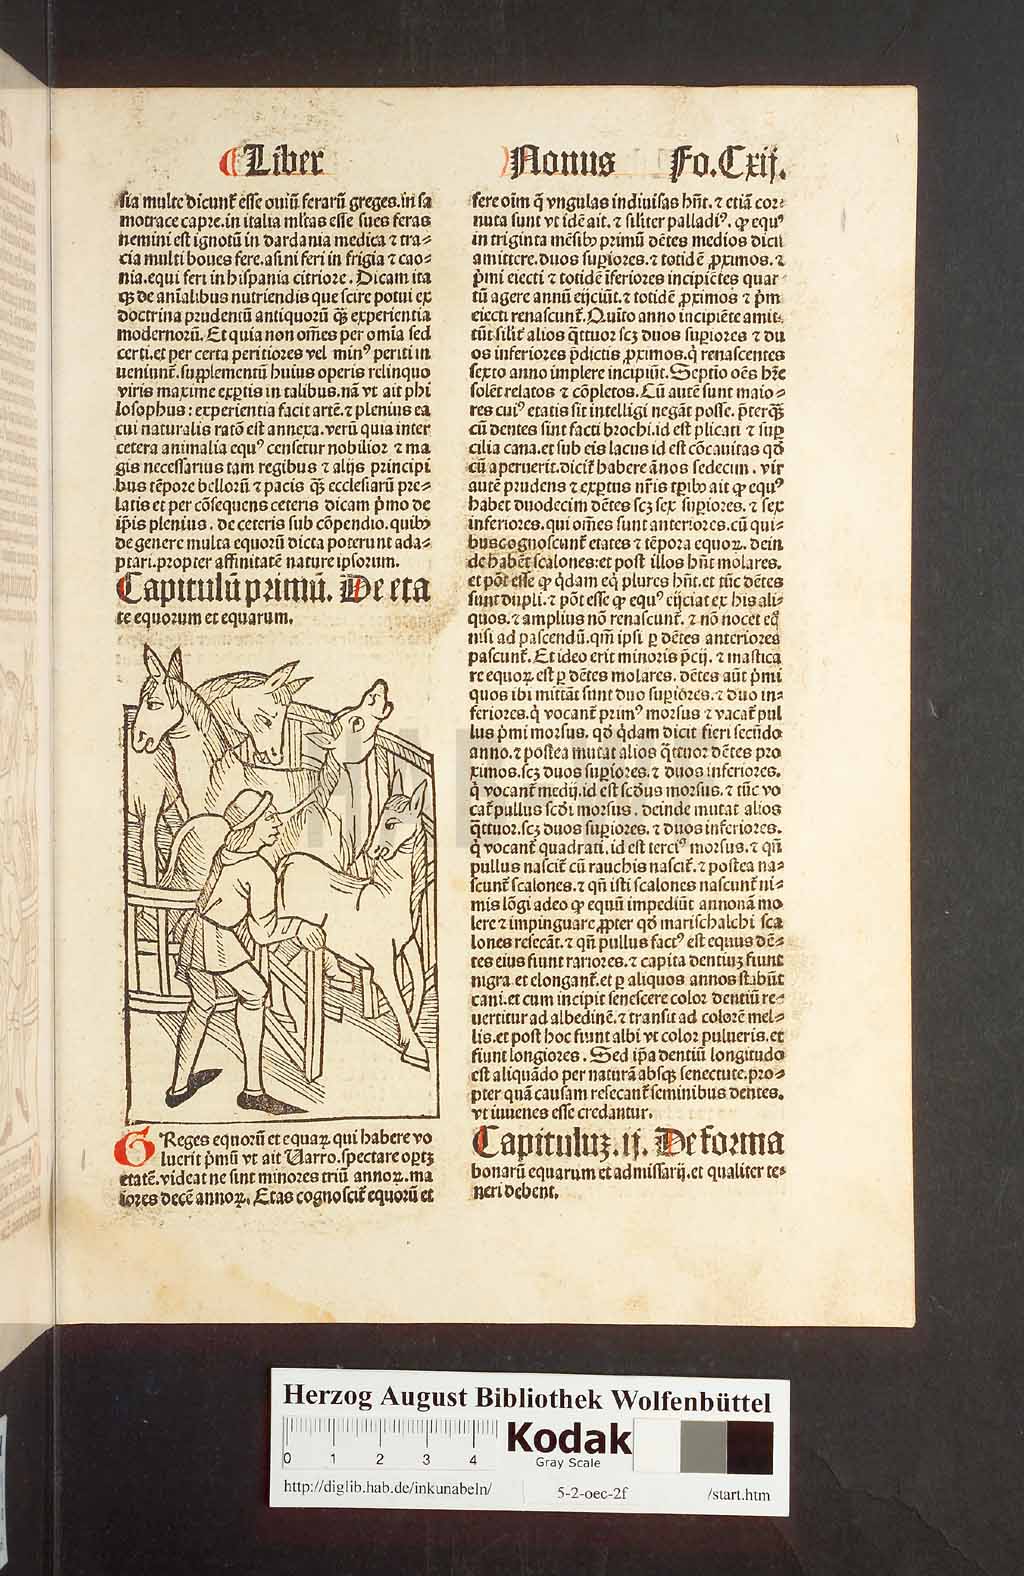 Liber Nonus Fo.Cxij.
sia multe dicunt̃ esse ouiũ ferarũ greges.in sa
motrace capre.in italia ml̃tas esse sues feras
nemini est ignotũ in dardania medica ⁊ tra⸗
cia multi boues fere.asini feri in frigia ⁊ cao⸗
nia.equi feri in hispania citriore. Dicam ita
qꝫ de aĩalibus nutriendis que scire potui ex
doctrina prudentũ antiquorũ qꝫ̃ experientia
modernorũ. Et quia non om̃es per omĩa sed
certi.et per certa peritiores vel minꝰ periti in
ueniunt̃.supplementũ huius operis relinquo
viris maxime exꝑtis in talibus.nã vt ait phi
losophus: experientia facit artẽ.⁊ plenius ea
cui naturalis ratõ est annexa.verũ quia inter
cetera animalia equꝰ censetur nobilior ⁊ ma
gis necessarius tam regibus ⁊ alijs principi
bus tẽpore bellorũ ⁊ pacis qꝫ̃ ecclesiarũ pre⸗
latis et per cõsequens ceteris dicam p̃mo de
ip̃is plenius. de ceteris sub cõpendio.quibꝰ
de genere multa equorũ dicta poterunt ada⸗
ptari.propter affinitatẽ nature ipsorum.
Capitulũ primũ. De eta
te equorum et equarum.
GReges equorũ et equaꝝ qui habere vo
luerit p̃mũ vt ait Varro.spectare oꝑtꝫ
etatẽ.videat ne sint minores triũ annoꝝ.ma
iores decẽ annoꝝ. Etas cognoscit̃ equorũ et
fere oĩm q̃ vngulas indiuisas hñt. ⁊ etiã cor⸗
nuta sunt vt idẽ ait. ⁊ sil̃iter palladiꝰ. ꝙ equꝰ
in triginta mẽsibꝰ primũ dẽtes medios dicit̃
amittere.duos suꝑiores.⁊ totidẽ ꝓximos. ⁊
p̃mi eiecti ⁊ totidẽ ĩferiores incipiẽtes quar
tũ agere annũ eijciũt.⁊ totidẽ ꝓximos ⁊ p̃m
eiecti renascunt̃. Quĩto anno incipiẽte amit⸗
tũt.silit̃ alios q̃ttuor scꝫ duos suꝑiores ⁊ du
os inferiores p̃dictis ꝓximos.q̃ renascentes
sexto anno implere incipiũt. Septĩo oẽs hr̃e
solẽt relatos ⁊ cõpletos. Cũ autẽ sunt maio⸗
res cuiꝰ etatis sit intelligi negãt posse. p̃terqꝫ̃
cũ dentes sint facti brochi.id est plicati ⁊ suꝑ
cilia cana.et sub eis lacus id est cõcauitas qđ
cũ aperuerit.dicit̃ habere ãnos sedecim. vir
autẽ prudens ⁊ exꝑtus nr̃is tꝑibꝰ ait ꝙ equꝰ
habet duodecim dẽtes scꝫ sex suꝑiores. ⁊ sex
inferiores.qui om̃es sunt anteriores.cũ qui⸗
bus cognoscunt̃ etates ⁊ tẽpora equoꝝ. dein
de habẽt scalones:et post illos hñt molares.
et põt esse ꝙ q̃dam eq̃ plures hñt.et tũc dẽtes
sunt dupli.⁊ põt esse ꝙ equꝰ eijciat ex his ali⸗
quos.⁊ amplius nõ renascunt̃. ⁊ nõ nocet eq̃
nisi ad pascendũ.qm̃ ipsi ꝑ dẽtes anteriores
pascunt̃. Et ideo erit minoris p̃cij. ⁊ mastica
re equoꝝ est ꝑ dẽtes molares. dẽtes aũt p̃mi
quos ibi mittãt sunt duo suꝑiores. ⁊ duo in⸗
feriores.q̃ vocant̃ primꝰ morsus ⁊ vocat̃ pul
lus p̃mi morsus. qđ q̃dam dicit fieri secũdo
anno.⁊ postea mutat alios q̃ttuor dẽtes pro
ximos.scꝫ duos suꝑiores. ⁊ duos inferiores.
q̃ vocant̃ medij.id est scđus morsus.⁊ tũc vo
cat̃ pullus scđi morsus. deinde mutat alios
q̃ttuor.scꝫ duos suꝑiores. ⁊ duos inferiores.
q̃ vocant̃ quadrati.id est terciꝰ morsus.⁊ qñ
pullus nascit̃ cũ rauchis nascit̃.⁊ postea na⸗
scunt̃ scalones.⁊ qñ isti scalones nascunt̃ ni⸗
mis lõgi adeo ꝙ equũ impediũt annonã mo
lere ⁊ impinguare.ꝓpter qđ marischalchi sca
lones resecãt.⁊ qñ pullus factꝰ est equus dẽ⸗
tes eius fiunt rariores.⁊ capita dentiuꝫ fiunt
nigra et elongant̃.et ꝑ aliquos annos st̃ibũt
cani.et cum incipit senescere color dentiũ re⸗
uertitur ad albedinẽ.⁊ transit ad colorẽ mel⸗
lis.et post hoc fiunt albi vt color pulueris.et
fiunt longiores. Sed ip̃a dentiũ longitudo
est aliquãdo per naturã absqꝫ senectute.pro⸗
pter quã causam resecant̃ seminibus dentes.
vt iuuenes esse credantur.
Capituluꝫ.ij. De forma
bonarũ equarum et admissarij.et qualiter te⸗
neri debent.
HAB
Herzog August Bibliothek Wolfenbüttel
0 1 2 3 4
Kodak
Gray Scale
http://diglib.hab.de/inkunabeln/ 5-2-oec-2f /start.htm